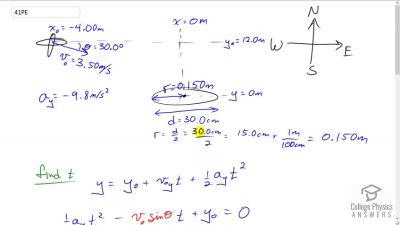 41PE
x₀ = -4.00m
x = 0m
N
θ = 30.0°
y₀ = 12.0m
W
E
v₀ = 3.50 m/s
S
r = 0.150m
a_y = -9.8 m/s²
y = 0m
d = 30.0cm
r = d/2 = 30.0cm/2 = 15.0cm × 1m/100cm = 0.150m
find t
y = y₀ + v₀y t + ½ a_y t²
½ a_y t² - v₀ sinθ t + y₀ = 0
College Physics
ANSWERS